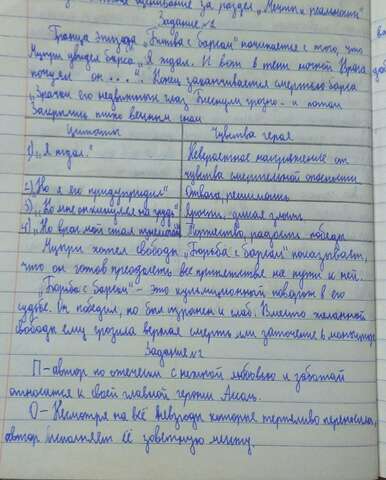 оценивание за раздел „Мечты и реальность"
Задание №2
Граница эпизода „Битва с барсом" начинается с того, что
Мцыри увидел барса „Я ждал. И вот в тени ночной Врага
почуял он ...." Конец заканчивается смертью барса
„Зрачки его недвижных глаз Блеснули грозно - и потом
Закрылись тихо вечным сном
Цитаты Чувства героя
1) „Я ждал." Невероятное напряжение от
чувства смертельной опасности
2) „Но я его предупредил" Отвага, решимость
3) „Ко мне он кинулся на грудь" ярость, дикая злоба
4) „Но враг мой стал изнемогать" Торжество, радость победы
Мцыри хотел свободы „Борьба с барсом" показывает,
что он готов преодолеть все препятствия на пути к ней.
„Борьба с барсом" - это кульминационный поворот в его
судьбе. Он победил, но был изранен и слаб. Вместо желанной
свободы ему грозила верная смерть или заточение в монастыре
Задание №2
П - автор по отечески с нежной любовью и заботой
относится к своей главной героини Ассоль.
О - Несмотря на всё невзгоды которые терпеливо переносила,
автор выполняет её заветную мечту.